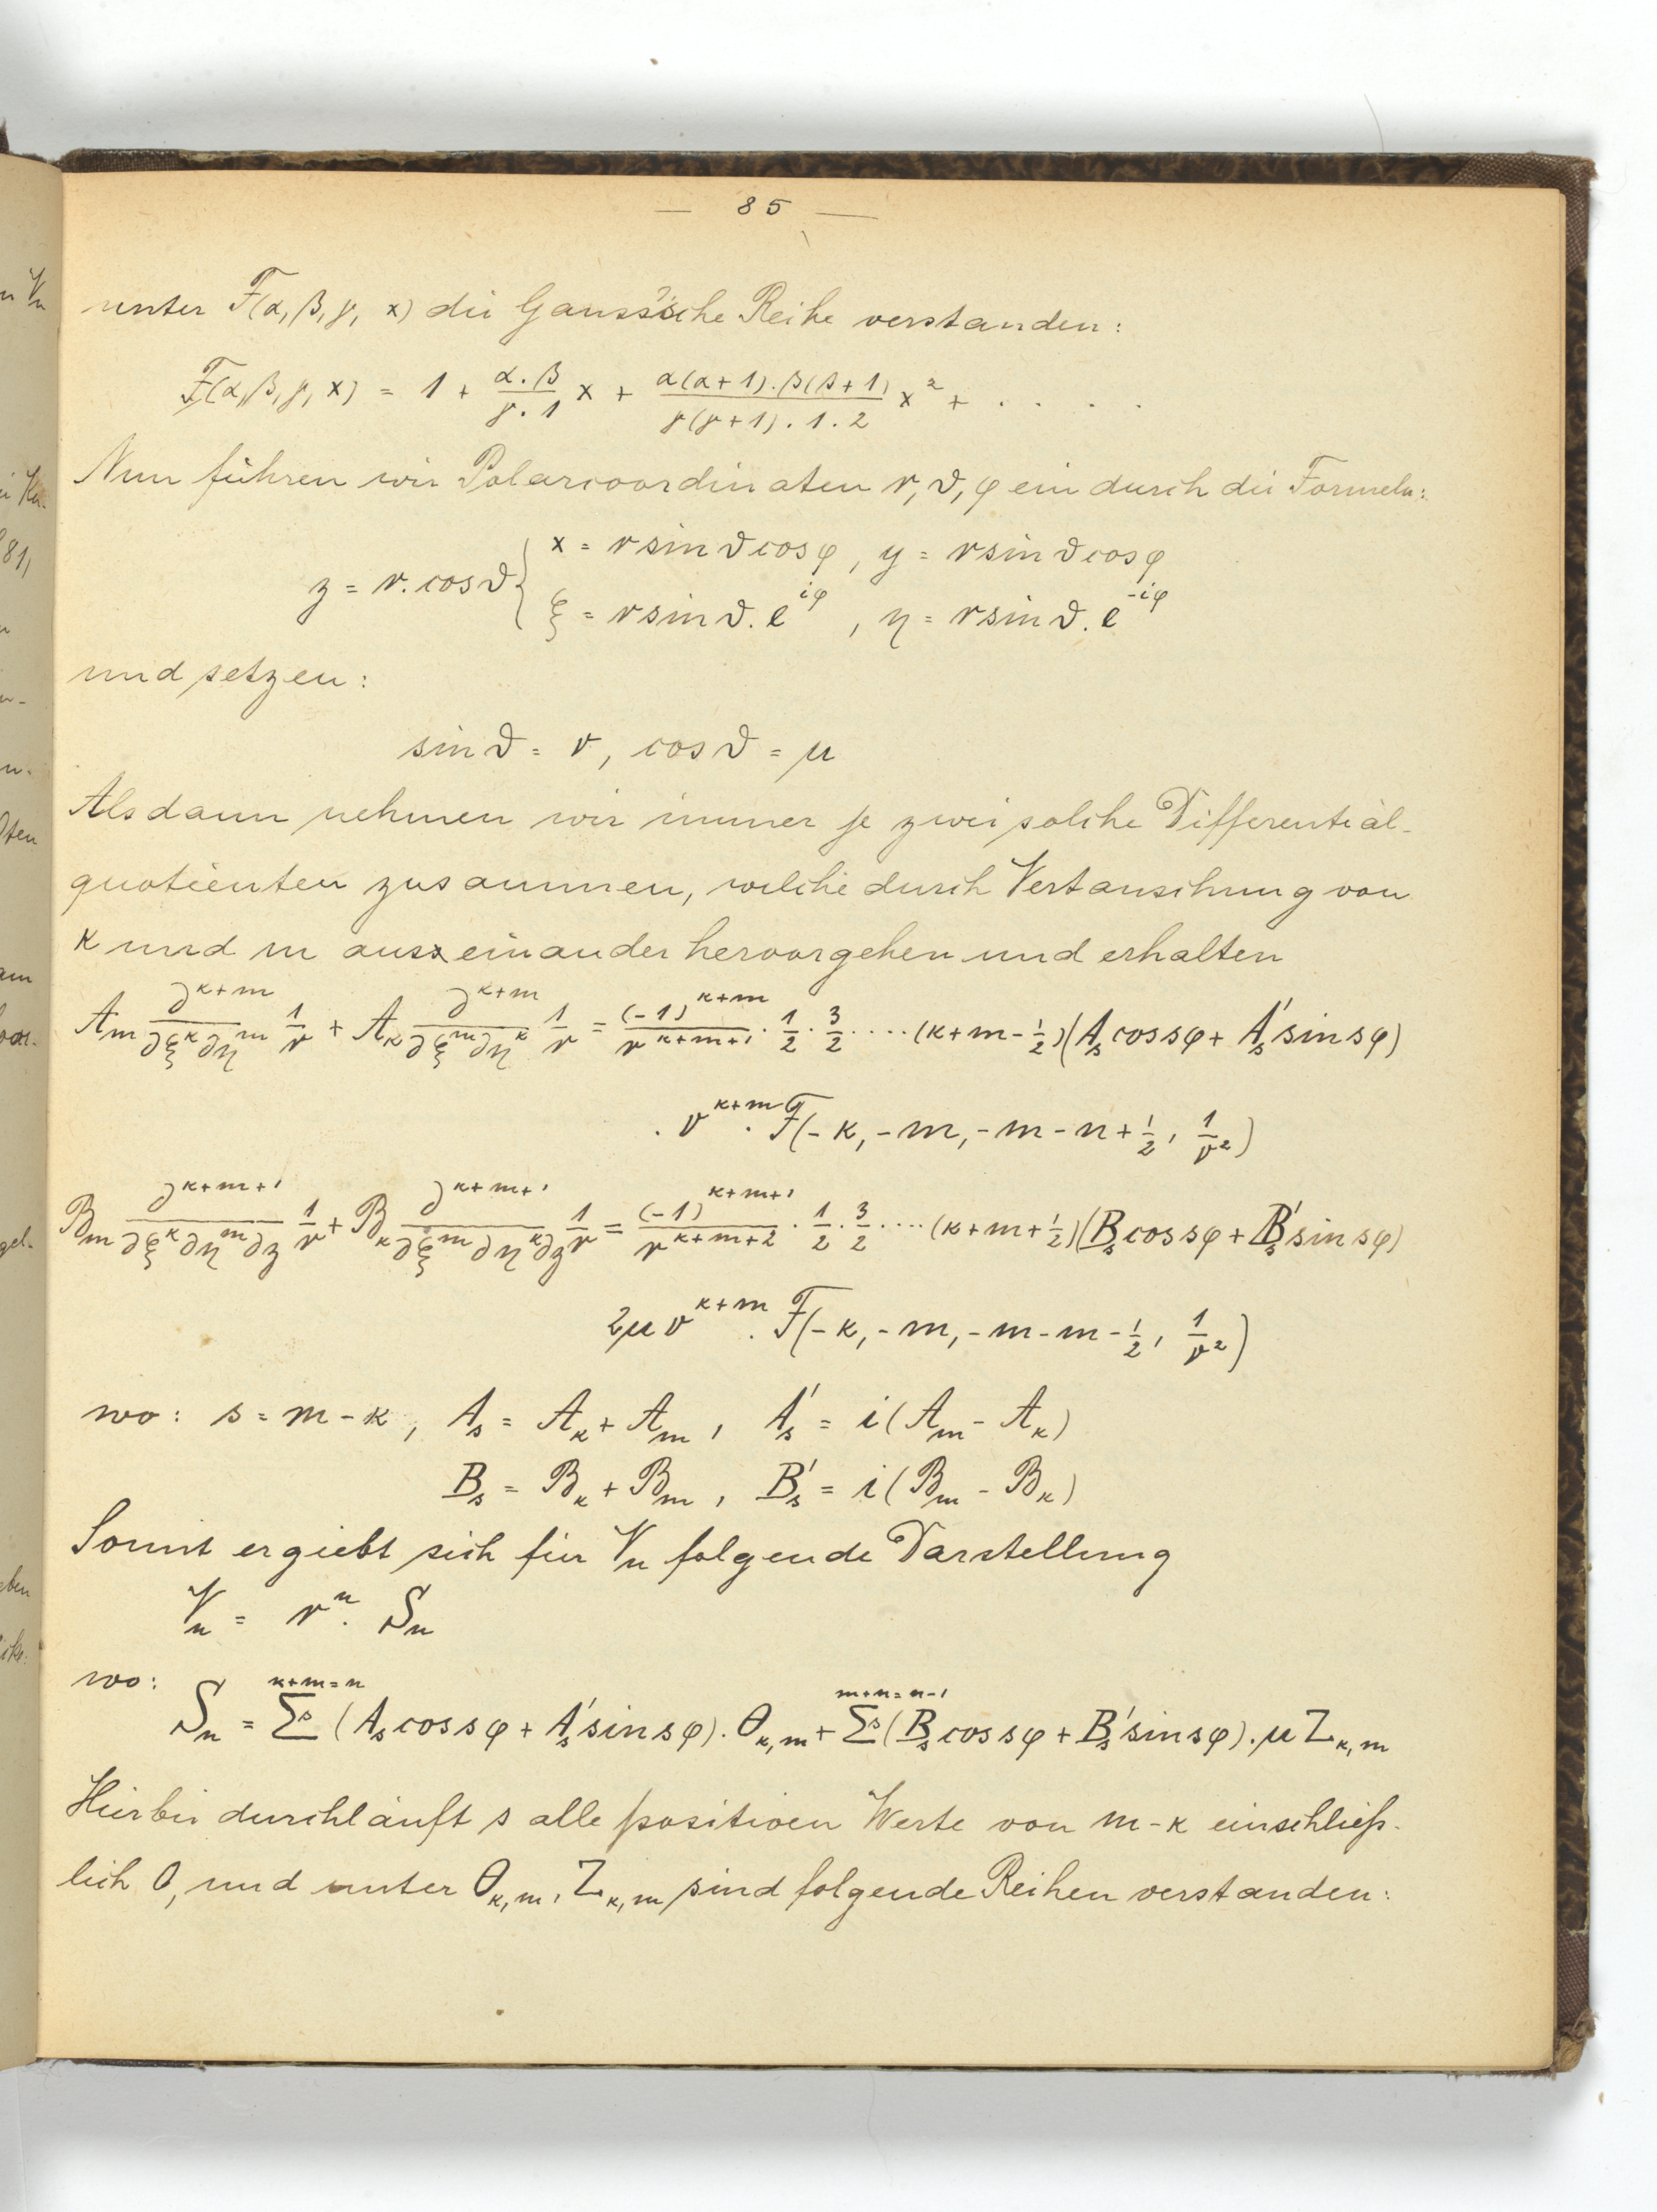 — 85 —
unter F(α, β, γ, x) die Gauss'sche Reihe verstanden:
F(α, β, γ, x) = 1 + \frac{α.β}{γ.1} x + \frac{α(α+1).β(β+1)}{γ(γ+1).1.2} x² + . . . .
Nun führen wir Polarcoordinaten r, ϑ, φ ein durch die Formeln:
x = r sin ϑ cos φ, y = r sin ϑ cos φ
z = r. cos ϑ {
ξ = r sin ϑ. e^{iφ}, η = r sin ϑ. e^{-iφ}
und setzen:
sin ϑ = ν, cos ϑ = μ
Alsdann nehmen wir immer je zwei solche Differential-
quotienten zusammen, welche durch Vertauschung von
κ und m aus einander hervorgehen und erhalten
A_m \frac{∂^{κ+m}}{∂ξ^κ ∂η^m} \frac{1}{r} + A_κ \frac{∂^{κ+m}}{∂ξ^m ∂η^κ} \frac{1}{r} = \frac{(-1)^{κ+m}}{r^{κ+m+1}} . \frac{1}{2} . \frac{3}{2} ..... (κ+m-\frac{1}{2}) (A_s cos sφ + A'_s sin sφ)
. ν^{κ+m} . F(-κ, -m, -m-n+\frac{1}{2}, \frac{1}{ν²})
B_m \frac{∂^{κ+m+1}}{∂ξ^κ ∂η^m ∂z} \frac{1}{r} + B_κ \frac{∂^{κ+m+1}}{∂ξ^m ∂η^κ ∂z} \frac{1}{r} = \frac{(-1)^{κ+m+1}}{r^{κ+m+2}} . \frac{1}{2} . \frac{3}{2} ..... (κ+m+\frac{1}{2}) (B_s cos sφ + B'_s sin sφ)
2μ ν^{κ+m} . F(-κ, -m, -m-m-\frac{1}{2}, \frac{1}{ν²})
wo: s = m - κ, A_s = A_κ + A_m, A'_s = i (A_m - A_κ)
B_s = B_κ + B_m, B'_s = i (B_m - B_κ)
Somit ergiebt sich für V_n folgende Darstellung
V_n = r^n . S_n
wo:
S_n = \sum_s^{κ+m=n} (A_s cos sφ + A'_s sin sφ). Θ_{κ,m} + \sum_s^{m+κ=n-1} (B_s cos sφ + B'_s sin sφ). μ Z_{κ,m}
Hierbei durchläuft s alle positiven Werte von m-κ einschließ-
lich 0, und unter Θ_{κ,m}, Z_{κ,m} sind folgende Reihen verstanden: